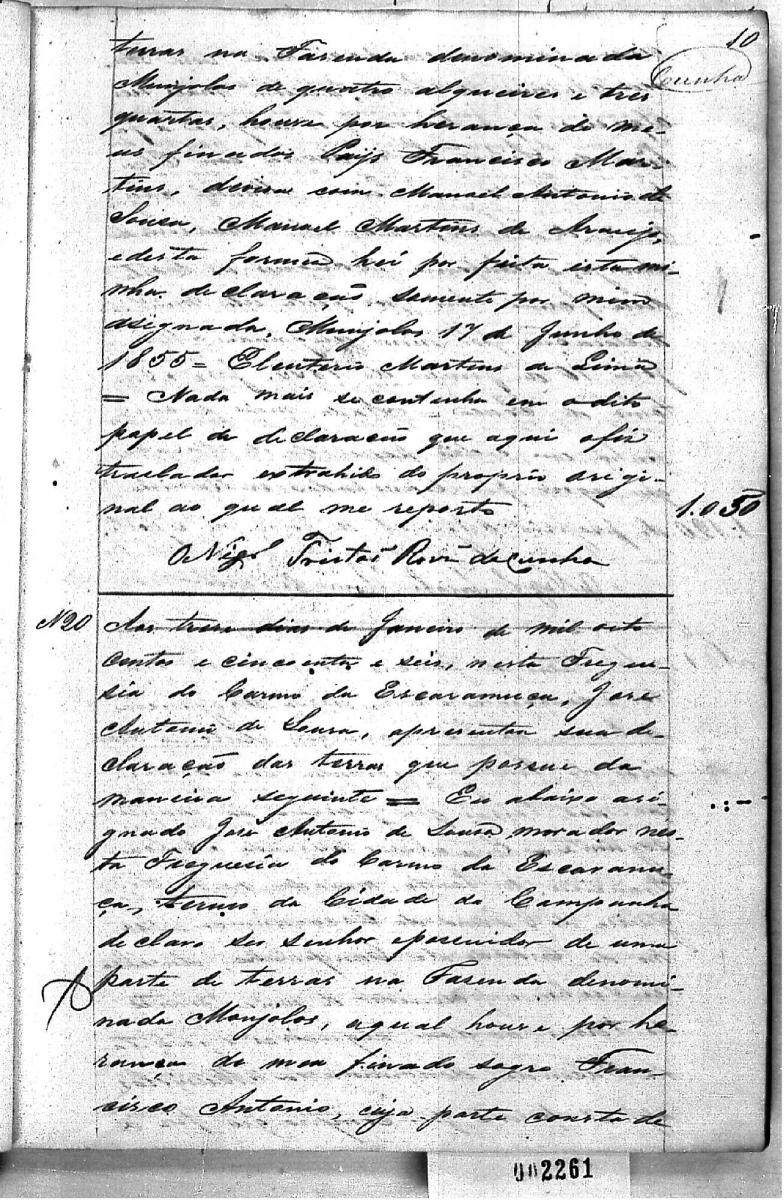 10
Cunha
terras na Fazenda denominada
Monjolos de quatro alqueires e tres
quartas, houve por herança de me-
us finados Pays Francisco Mar-
tins, devisa com Manoel Antonio de
Sousa, Manoel Martins de Araujo,
e desta forma hei por feita esta mi-
nha declaração, somente por mim
asignada, Monjolos 17 de Junho de
1855 = Eleuterio Martins de Lima
= Nada mais se continha em o dito
papel de declaração que aqui o fis
trasladar extrahido do proprio origi-
nal ao qual me reporto
1.050
O Vigº Tristão Roiz da Cunha
N20
Aos treze dias de Janeiro de mil oito
centos e cincoenta e seis, nesta Fregue-
sia do Carmo da Escaramuça, José
Antonio de Sousa, apresentou sua de-
claração das terras que possue da
maneira seguinte = Eu abaixo asi-
gnado José Antonio de Sousa morador nes-
ta Freguesia do Carmo da Escaramu-
ça, termo da Cidade da Campanha
declaro ser senhor e posuidor de uma
parte de terras na Fasenda denomi-
nada Monjolos, a qual houve por he-
rança do meu finado sogro Fran-
cisco Antonio, cuja parte consta de
002261